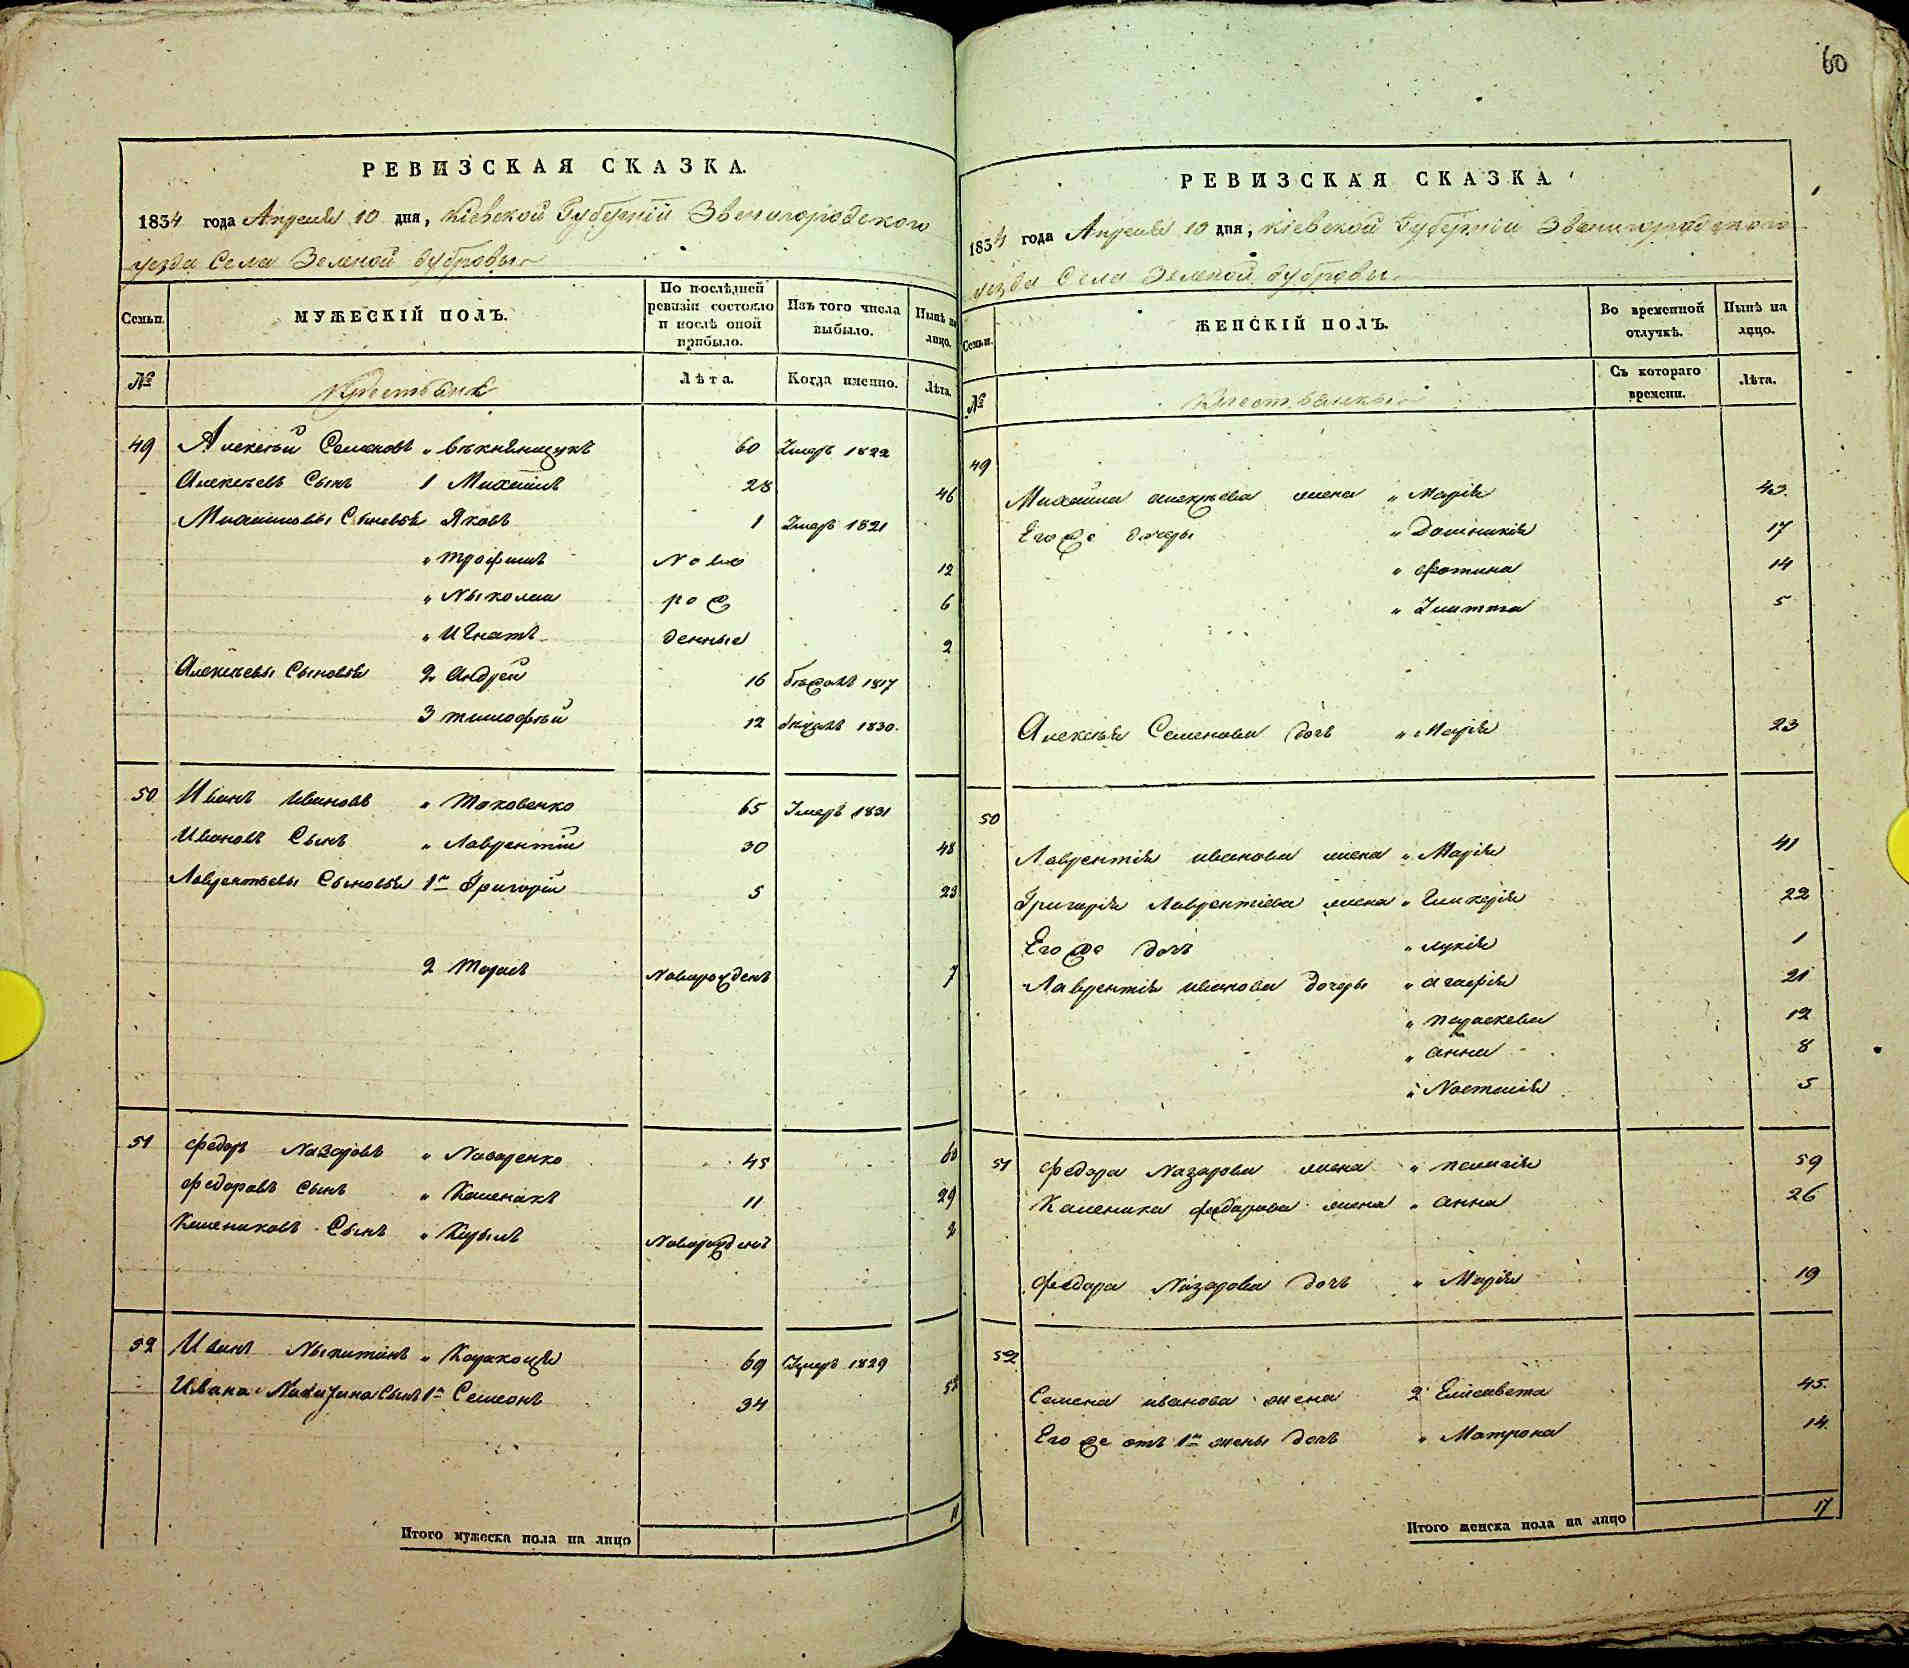 60
РЕВИЗСКАЯ СКАЗКА.
1834 года Апреля 10 дня, Кіевской Губерніи Звенигородского
уезда Села Зеленой Дубровы
Семьи.
МУЖЕСКІЙ ПОЛЪ.
По послѣдней ревизіи состояло и послѣ оной прибыло.
Изъ того числа выбыло.
Нынѣ на лицо.
№
Крестьяне
Лѣта.
Когда именно.
Лѣта.
49 Алексѣй Семеновъ 60 Умеръ 1822
Алексѣевъ Сынъ 1 Михаилъ 28 46
Михаиловы Сыновья Яковъ 1 Умеръ 1821
" Трофимъ Ново 12
" Николай рож 6
" Игнатъ денные 2
Алексѣевы Сыновья 2 Андрей 16 бѣжалъ 1817
3 Тимофѣй 12 бѣжалъ 1830.
50 Иванъ Ивановъ " Токовенко 65 Умеръ 1831
Ивановъ Сынъ " Лаврентій 30 48
Лаврентьевы Сыновья 1й Григорій 5 23
2 Тарасъ Новорожденъ 7
51 Федоръ Назаровъ " Назаренко 45
Федоровъ Сынъ " Каленикъ 11 29
Калениковъ Сынъ " Кирылъ Новорожденъ 2
52 Иванъ 69 Умеръ 1829
Ивана Сынъ 1й Семенъ 34
Итого мужеска пола на лицо 11
РЕВИЗСКАЯ СКАЗКА
1834 года Апреля 10 дня, Кіевской Губерніи Звенигородского
уезда Села Зеленой Дубровы
Семьи.
ЖЕНСКІЙ ПОЛЪ.
Во временной отлучкѣ.
Нынѣ на лицо.
№
Крестьянки
Съ котораго времени.
Лѣта.
49
Михаила Алексѣева жена " Марія 43.
Его же дочери " Домникія 17
" Фотина 14
" 5
Алексѣя Семенова дочь " Марія 23
50
Лаврентія Иванова жена " Марія 41
Григорія Лаврентіева жена " Гликерія 22
Его же дочь " Лукія 1
Лаврентія Иванова дочеры " Агафія 21
" Параскева 12
" Анна 8
" Настасія 5
51 Федора Назарова жена " Пелагія 59
Каленика Федорова жена " Анна 26
Федора Назарова дочь " Марія 19
52
Семена Иванова жена 2 Елисавета 45.
Его же отъ 1й жены дочь " Матрона 14.
Итого женска пола на лицо 17